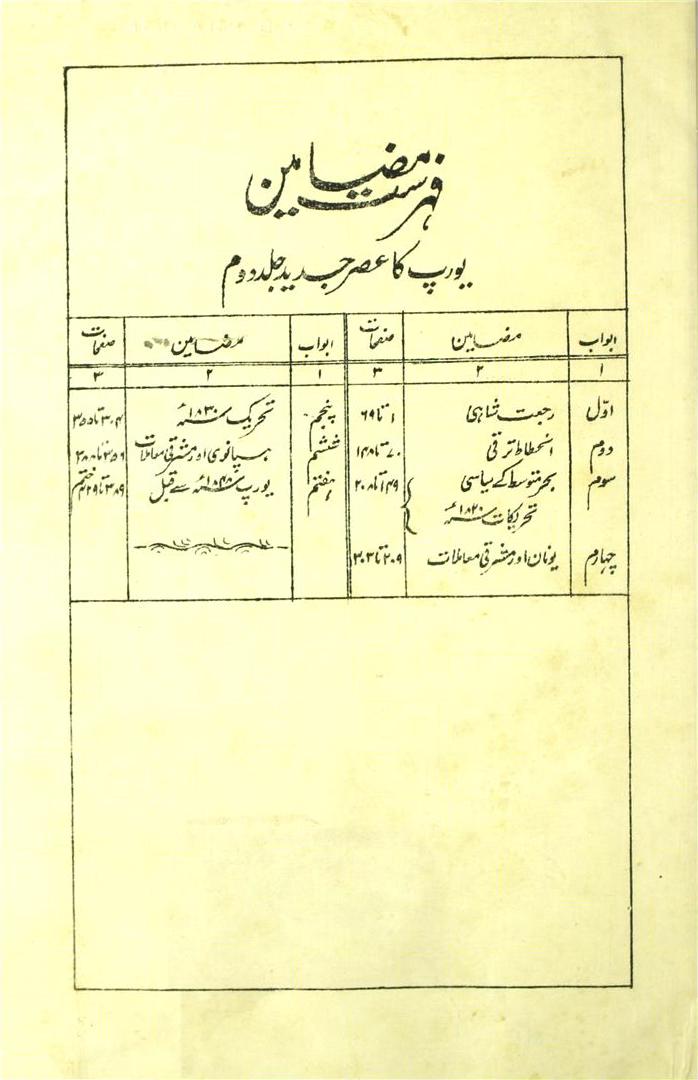 فہرست مضامین
یورپ کا عصر جدید جلد دوم
ابواب مضامین صفحات ابواب مضامین صفحات
۱ ۲ ۳ ۱ ۲ ۳
اوّل رجعت شاہی ۱ تا ۶۹ پنجم تحریک ۱۸۳۰ء ۳۰۴ تا ۳۵۵
دوم انحطاط ترقی ۷۰ تا ۱۴۸ ششم ہسپانوی اور مشرقی معاملات ۳۵۶ تا ۳۸۸
سوم بحر متوسط کے سیاسی ۱۴۹ تا ۲۰۸ ہفتم یورپ ۱۸۴۸ء سے قبل ۳۸۹ تا ۴۲۹ ختم
تحریکات ۱۸۲۰ء
چہارم یونان اور مشرقی معاملات ۲۰۹ تا ۳۰۳